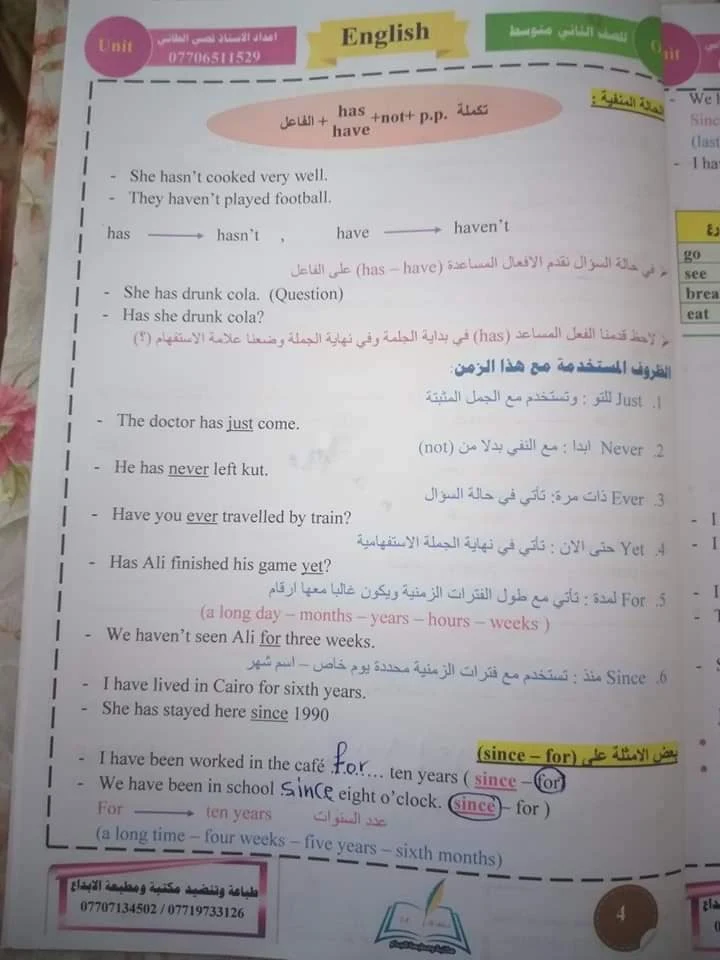 Unit
اعداد الاستاذ قصي الطائي
07706511529
English
للصف الثاني متوسط
Unit
الحالة المنفية :
الفاعل + has have +not+ p.p. تكملة
- She hasn't cooked very well.
- They haven't played football.
has → hasn't , have → haven't
في حالة السؤال نقدم الافعال المساعدة (has – have) على الفاعل
- She has drunk cola. (Question)
- Has she drunk cola?
لاحظ قدمنا الفعل المساعد (has) في بداية الجلمة وفي نهاية الجملة وضعنا علامة الاستفهام (؟)
الظروف المستخدمة مع هذا الزمن:
1. Just للتو : وتستخدم مع الجمل المثبتة
- The doctor has just come.
2. Never ابدا : مع النفي بدلا من (not)
- He has never left kut.
3. Ever ذات مرة: تأتي في حالة السؤال
- Have you ever travelled by train?
4. Yet حتى الان : تأتي في نهاية الجملة الاستفهامية
- Has Ali finished his game yet?
5. For لمدة : تأتي مع طول الفترات الزمنية ويكون غالبا معها ارقام
(a long day – months – years – hours – weeks )
- We haven't seen Ali for three weeks.
6. Since منذ : تستخدم مع فترات الزمنية محددة يوم خاص – اسم شهر
- I have lived in Cairo for sixth years.
- She has stayed here since 1990
بعض الامثلة على (since – for)
- I have been worked in the café .for... ten years ( since – for)
- We have been in school since eight o'clock. (since – for )
For → ten years عدد السنوات
(a long time – four weeks – five years – sixth months)
طباعة وتنضيد مكتبة ومطبعة الابداع
07707134502 / 07719733126
4
- We h
Sinc
(last
- I ha
go
see
brea
eat
- I
- I
- I